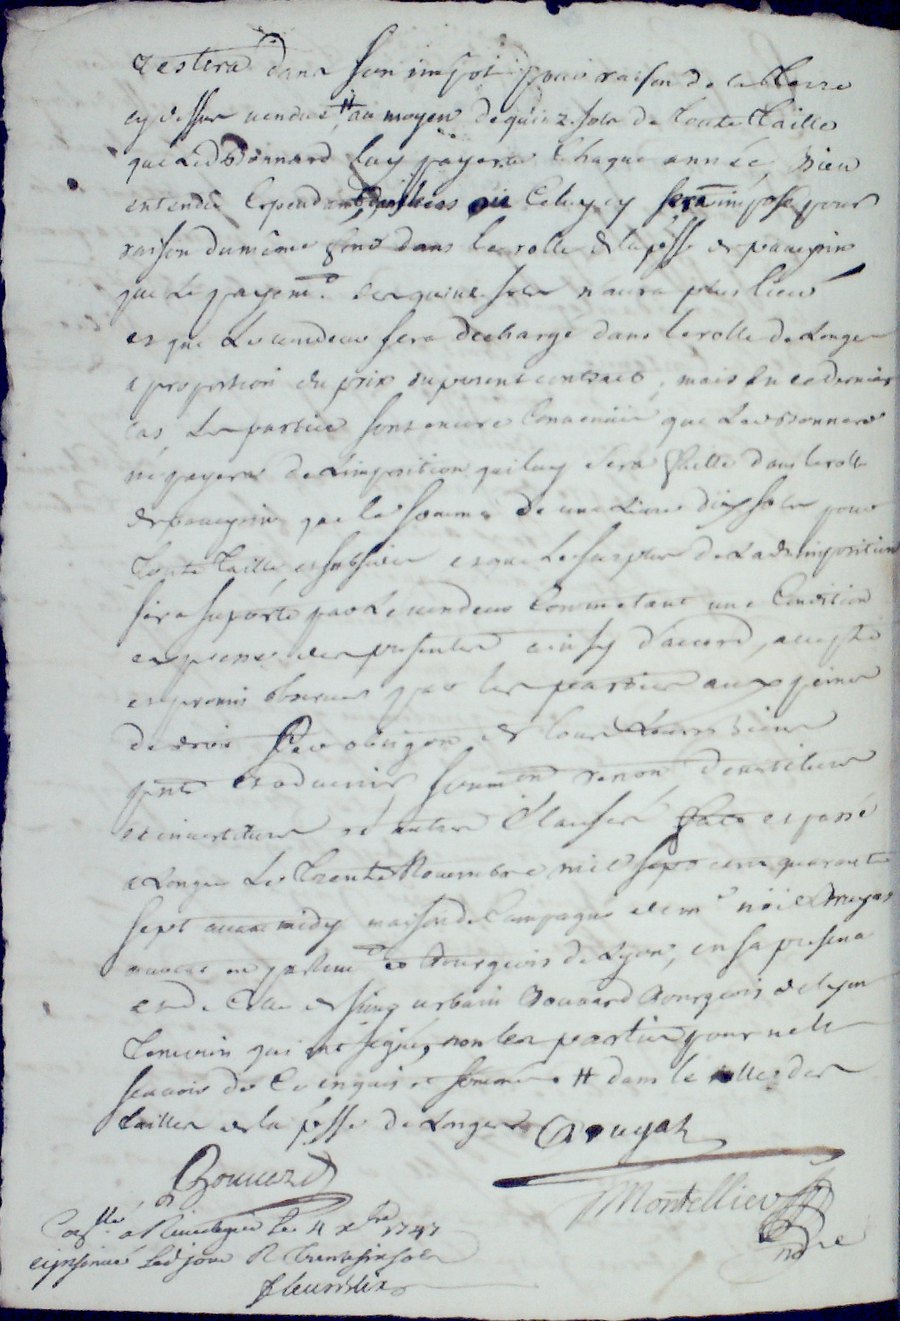 restera dans son impot pour raison de la terre
cy dessus vendue # au moyen de quinze sols de toute taille
que led Bonnard luy payera chaque année, bien
entendu cependant que celuy cy sera imposé pour
raison du meme fond dans le rolle de la psse de
que le payemt des quinze sols n'aura plus lieu
et que le vendeur sera decharge dans le rolle de Longes
a proportion du prix du present contract, mais en ce dernier
cas les parties sont encore convenues que led Bonnard
ne payera de l'imposition qui luy sera faitte dans le rolle
de que la somme de une livre dix sols pour
toute taille, et subside et que le surplus de lad imposition
sera suporté par le vendeur comme etant une condition
expresse des presentes ainsy d'accord, accepté
et promis observer par les parties aux peines
de droit par obligaon de tous leurs biens
pnts et advenir, soumon renon devestiture
et investiture et autres clauses fait et passé
a Longes le trente novembre mil sept cent quarante
sept avant midy maison de campagne de mr
avocat en parlemt et Bourgeois de Lyon, en sa presence
et de celle de sieur urbain Bonnard Bourgeois de Lyon
temoins qui ont signé, non les parties pour ne le
scavoir de ce enquis et sommé # dans le rolle des
tailles de la psse de Longes
Montellier
nore
Collé a le 4 xbre 1747
et insinué led jour R trente six sols